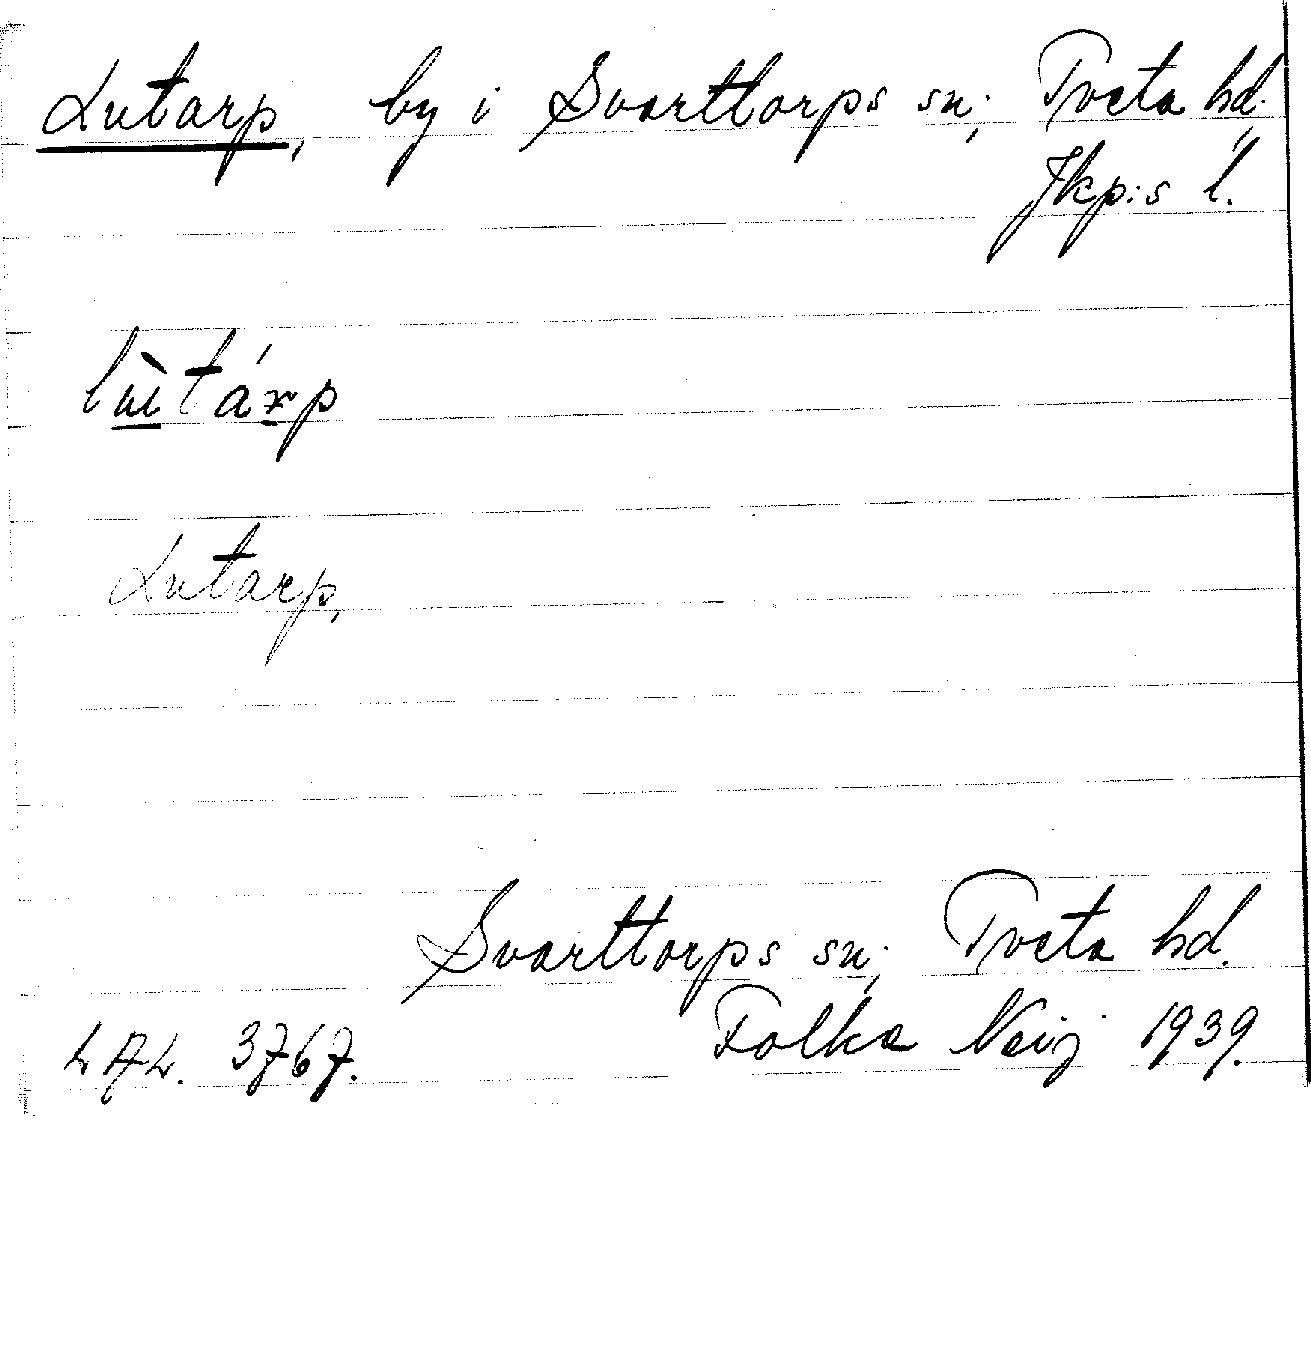 Lutarp, by i Svarttorps sn; Tveta hd.
Jkp:s l.
lùtárp
Lutarp,
Svarttorps sn; Tveta hd.
LAL. 3767. Folke Neij 1939.